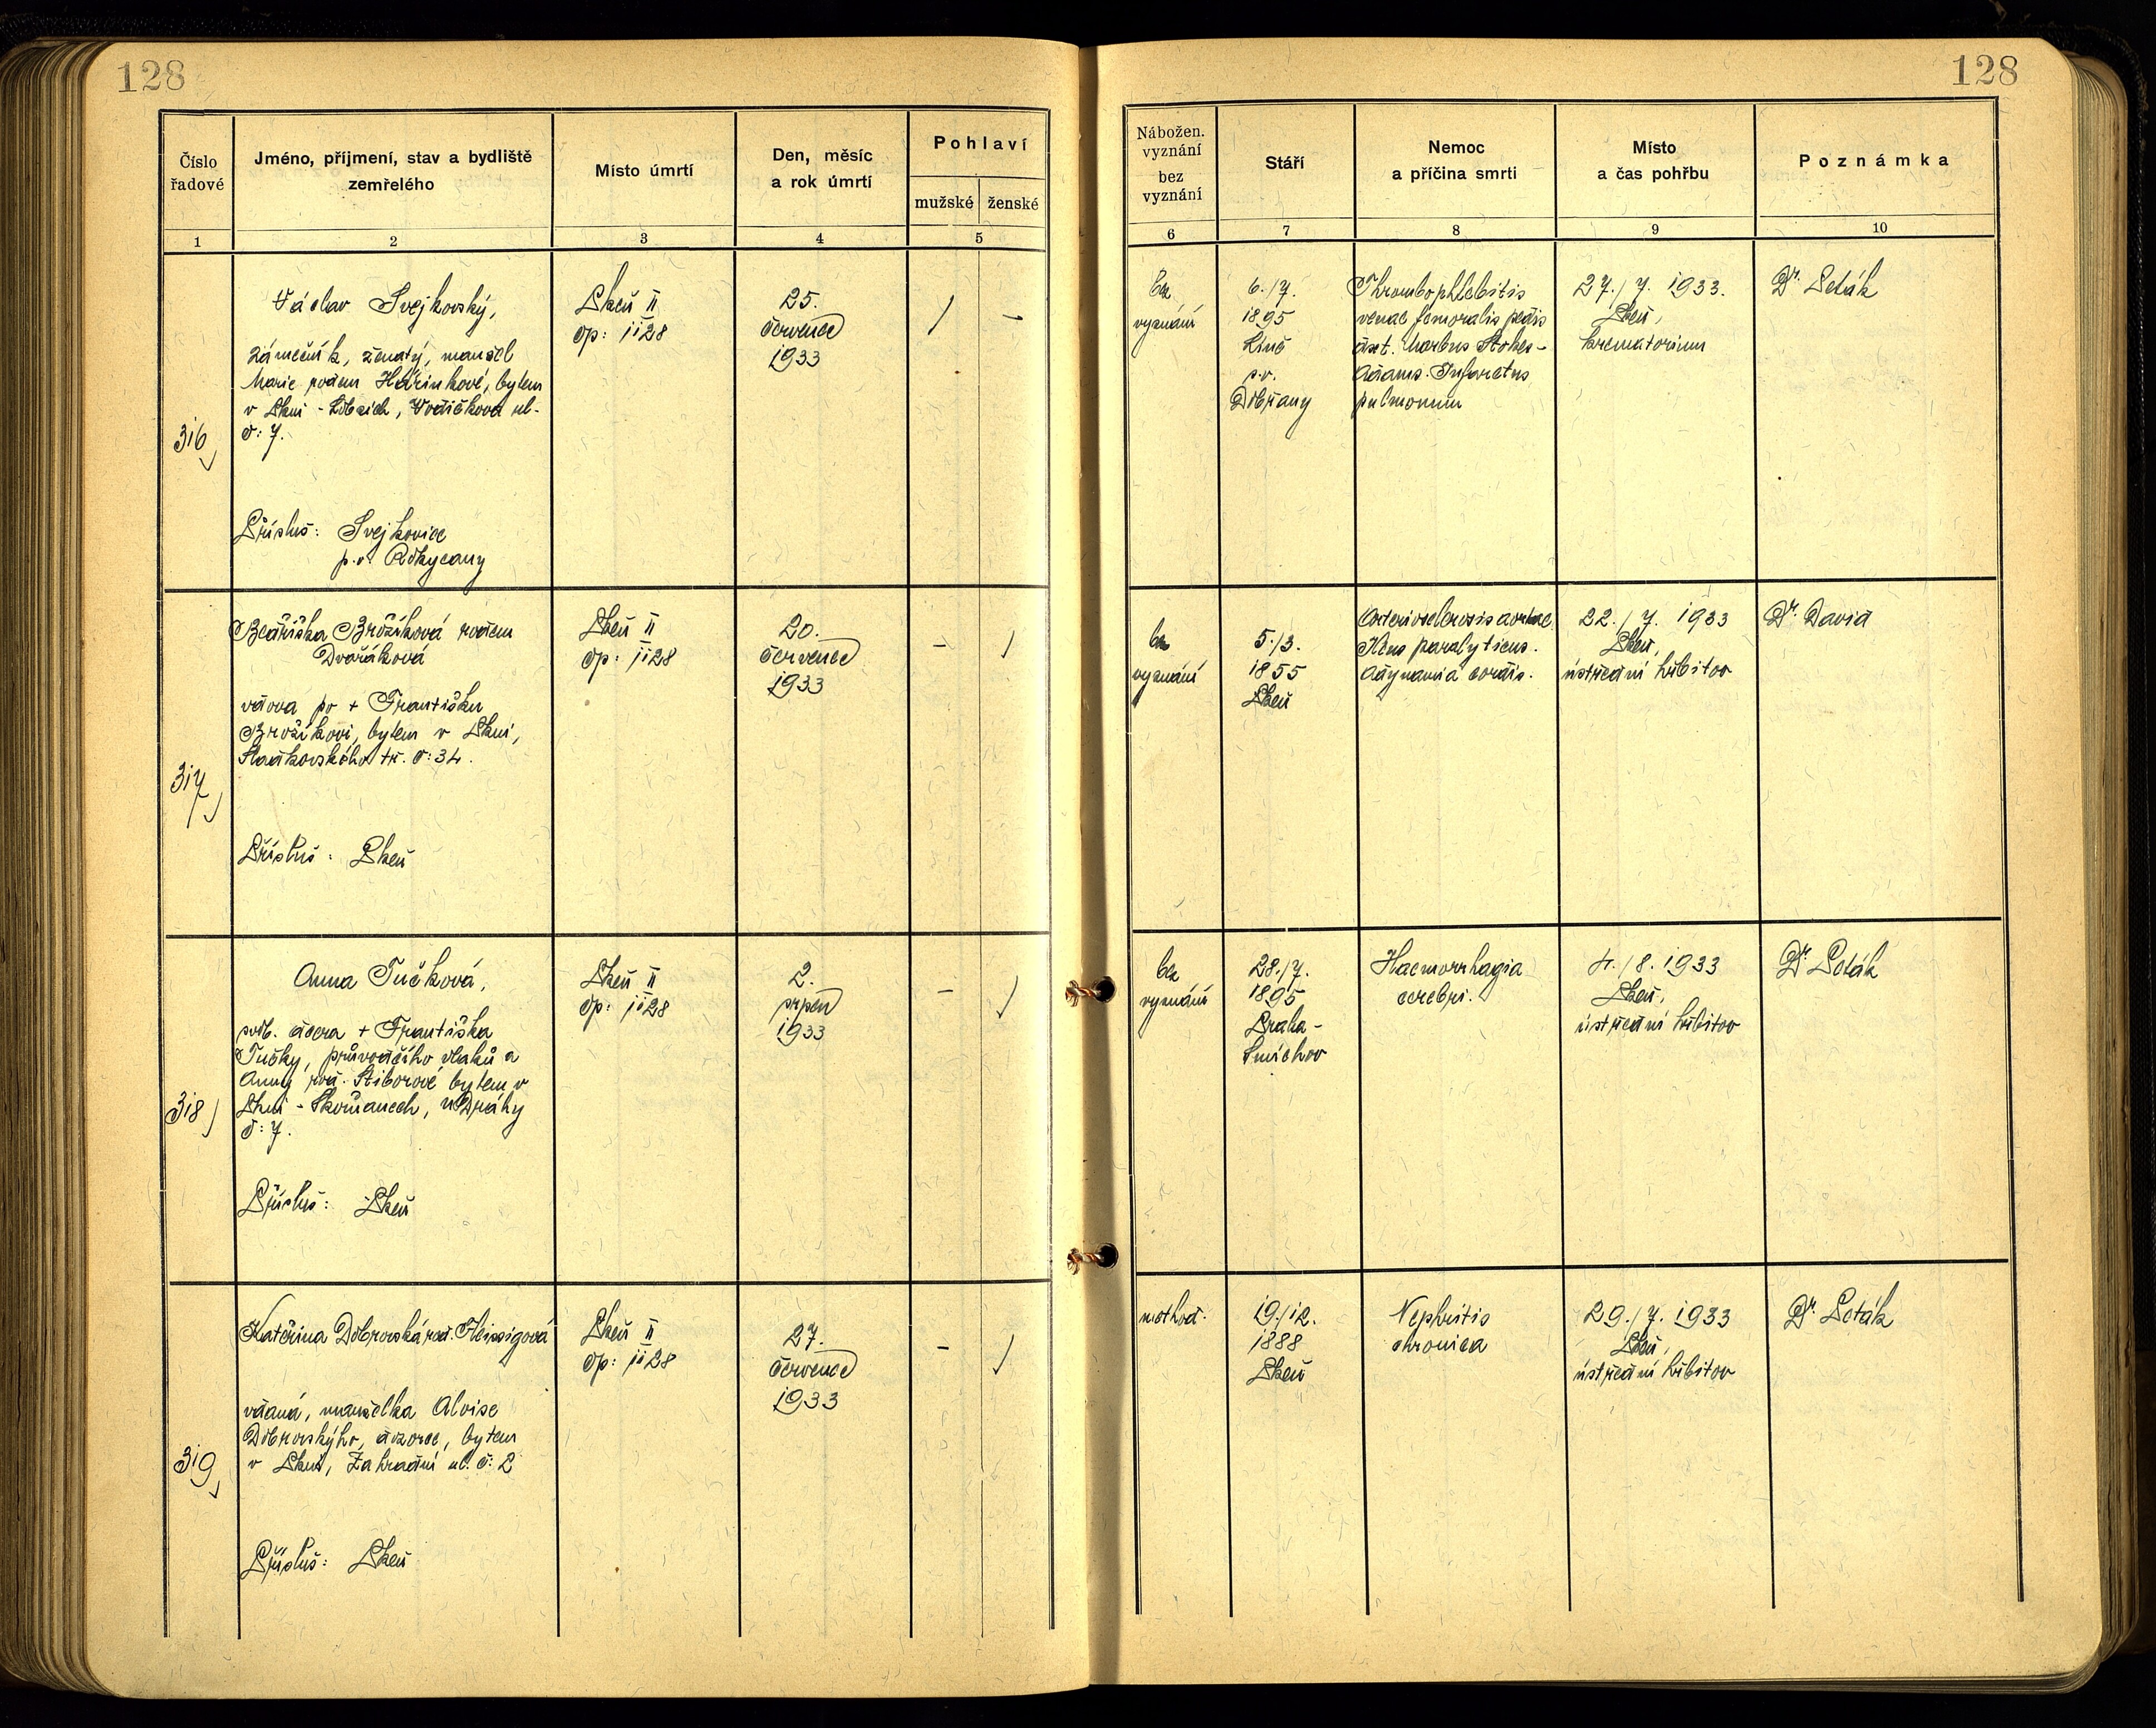 128
128
Číslo
řadové
Jméno, příjmení, stav a bydliště
zemřelého
Místo úmrtí
Den, měsíc
a rok úmrtí
Pohlaví
mužské
ženské
1
2
3
4
5
Nábožen.
vyznání
bez
vyznání
Stáří
Nemoc
a příčina smrti
Místo
a čas pohřbu
Poznámka
6
7
8
9
10
316
Václav Svejkovský,
zámečník, ženatý, manžel
Marie rodem Hářinkové, bytem
v Plzni - Lobzích, Vodičkova ul.
č: 7.
Přísluš: Svejkovice
p.o. Rokycany
Plzeň II
čp: 1128
25.
července
1933
/
-
bez
vyznání
6./7.
1895
Líně
p.o.
Dobřany
Thrombophlebitis
venae femoralis pedis
dext. Morbus Stokes-
Adams. Infarctus
pulmonum
27./7. 1933.
Plzeň,
krematorium
Dr. Peták
317
Bedřiška Brožíková rodem
Dvořáková
vdova po + Františku
Brožíkovi, bytem v Plzni,
Sladkovského tř. č: 34.
Přísluš: Plzeň
Plzeň II
čp: 1128
20.
července
1933
-
/
bez
vyznání
5./3.
1855
Plzeň
Arteriosclerosis aortae
Ileus paralyticus.
Adynamia cordis.
22./7. 1933
Plzeň,
ústřední hřbitov
Dr. David
318
Anna Tučková,
svob. dcera + Františka
Tučky, průvodčího vlaků a
Anny rod. Stiborové, bytem v
Plzni - Skvrňanech, u Dráhy
č: 7.
Přísluš: Plzeň
Plzeň II
čp: 1128
2.
srpen
1933
-
/
bez
vyznání
28./7.
1895
Praha -
Smíchov
Haemorrhagia
cerebri.
4./8. 1933
Plzeň,
ústřední hřbitov
Dr. Peták
319
Kateřina Dobrovská rod.
vdaná, manželka Aloise
Dobrovského, dozorce, bytem
v Plzni, Zahradní ul. č: 2
Přísluš: Plzeň
Plzeň II
čp: 1128
27.
července
1933
-
/
19./12.
1888
Plzeň
Nephritis
chronica
29./7. 1933
Plzeň,
ústřední hřbitov
Dr. Peták